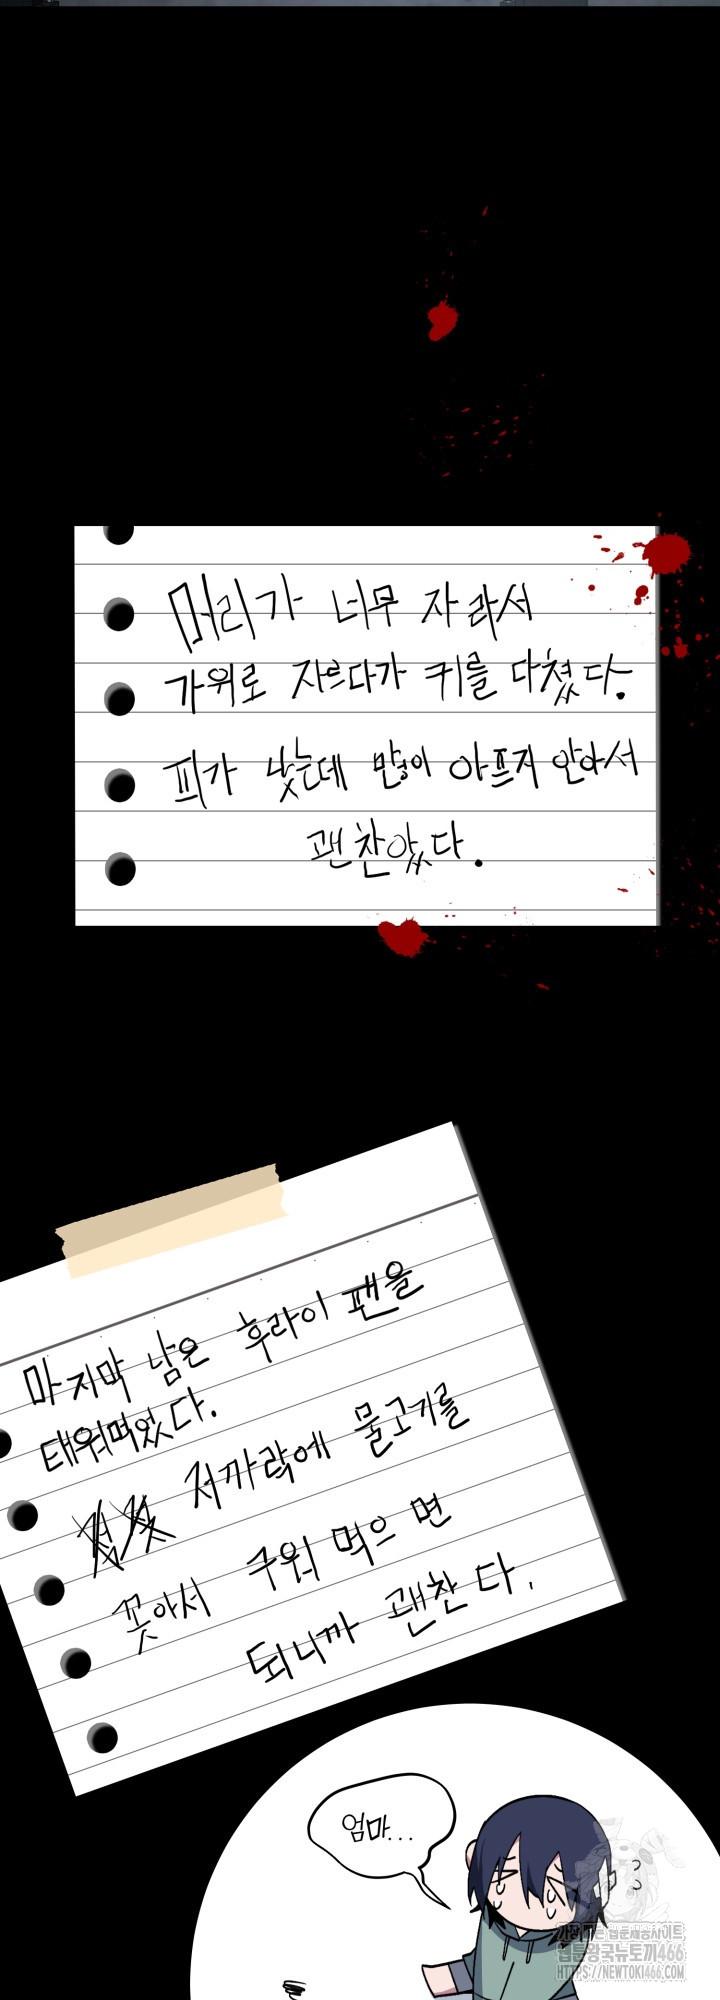 머리가 너무 자라서
가위로 자르다가 귀를 다쳤다.
피가 났는데 많이 아프지 안아서
괜찬았다.
마지막 남은 후라이팬을
태워먹었다.
저까락에 물고기를
꼿아서 구워 먹으면
되니까 괜찬다.
엄마...
가장빠른 웹툰제공사이트
웹툰왕국뉴토끼466
HTTPS://NEWTOKI466.COM